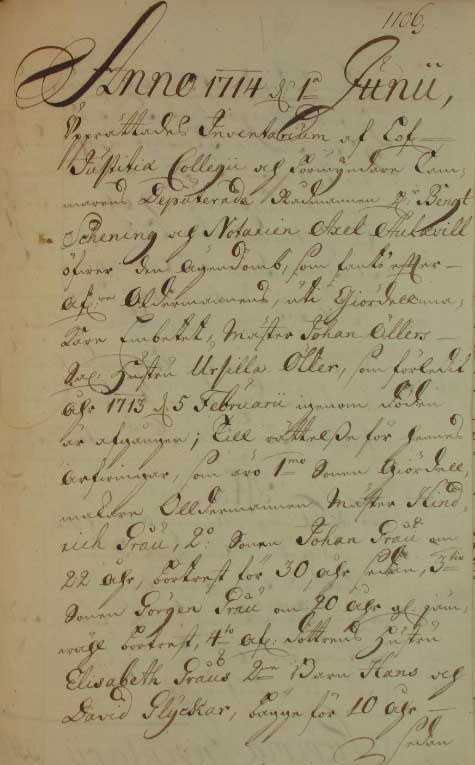 1106,
Anno 1714 d 1a Junii,
Upprättades Inventarium af Lof
Justitiæ Collegii och Förmyndare Cam-
marens Deputerade Rådmannen H: Bengt
Schening och Notarien Axel
öfwer den Ägendomb, som fants efter
Afl: Åldermannens, uti Giördelma-
kare Embetet, Mäster Johan Öllers
Sal: Hustru Ursilla Öller, som förledit
Åhr 1713 d 5 Februarii igenom döden
är afgången; Till rättelße för hennes
Arfwingar, som äro 1mo Sonen Giördell,
makare Olldermannen Mäster Hind,
rich Grau, 2o: Sonen Johan Grau om
22 Åhr, bortrest för 30 Åhr sedan, 3tio
Sonen Görgen Grau om 20 Åhr gl: jäm,
wähl bortrest, 4to afl: dottrens Hustru
Elisabeth Graus 2ne Barn Hans och
David Glyckar, bägge för 10 Åhr
sedan